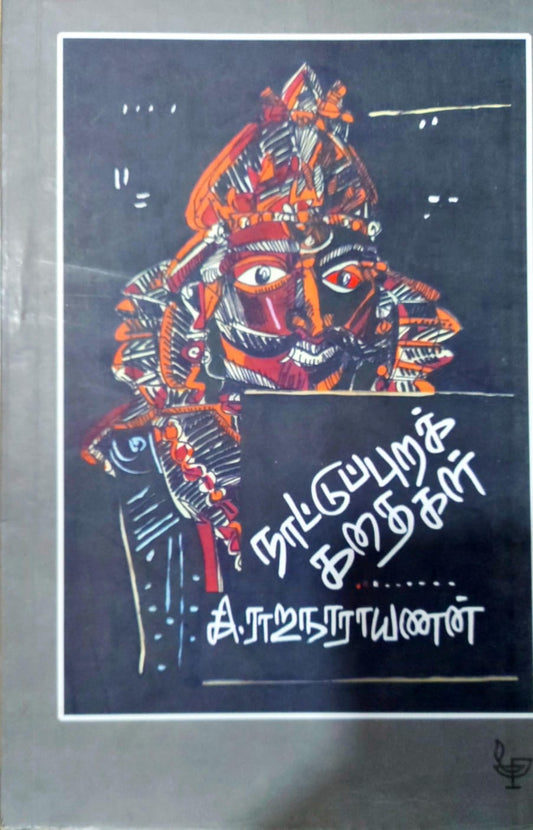 நாட்டுப்புறக்
கதைகள்
கி.ராஜநாராயணன்